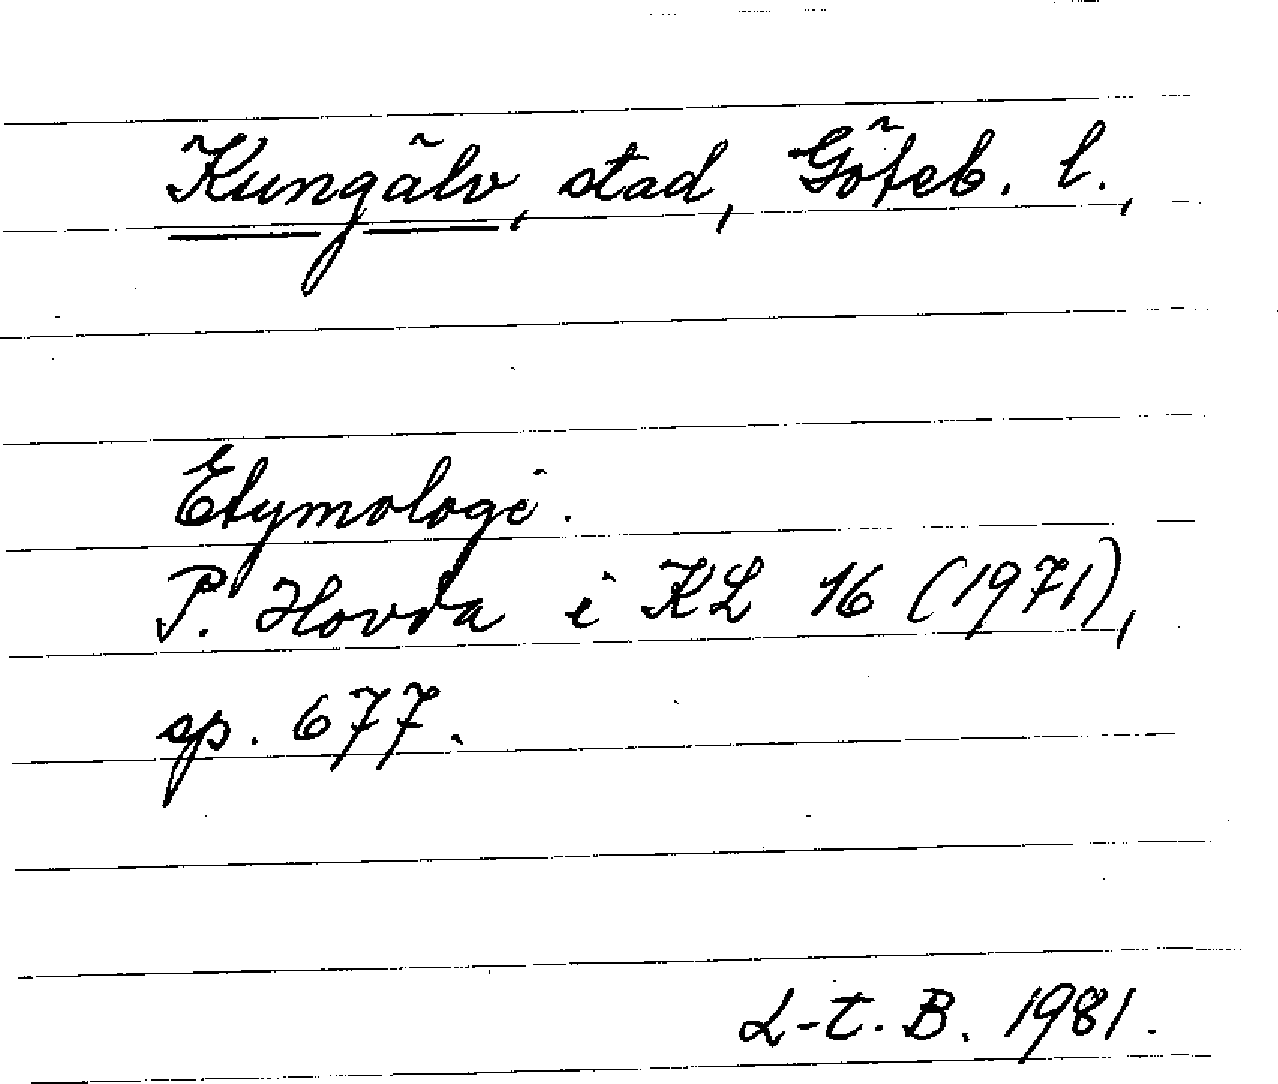 Kungälv, stad, Göteb. l.,
Etymologi.
P. Hovda i KL 16 (1971),
sp. 677.
L-t. B. 1981.